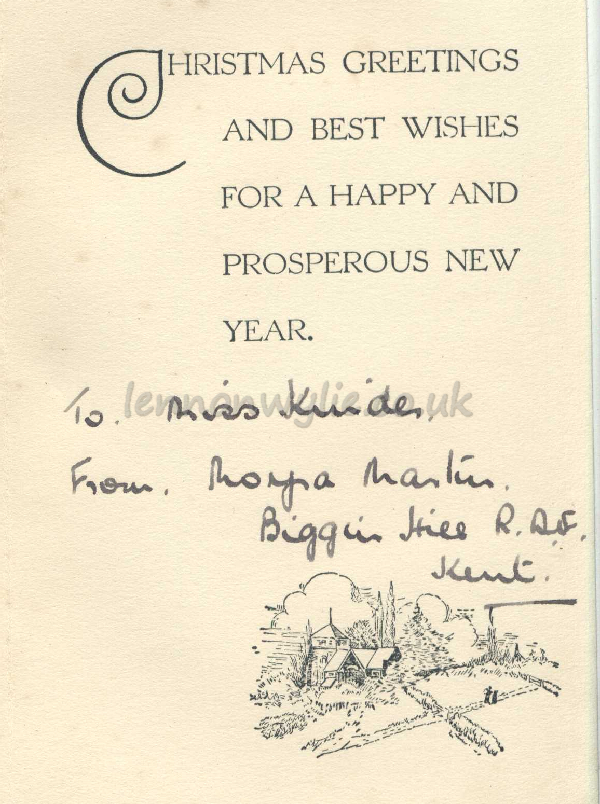 CHRISTMAS GREETINGS
AND BEST WISHES
FOR A HAPPY AND
PROSPEROUS NEW
YEAR.
lennonwylie.co.uk
To. Miss
From. Martin.
Biggin Hill R.A.F.
Kent.